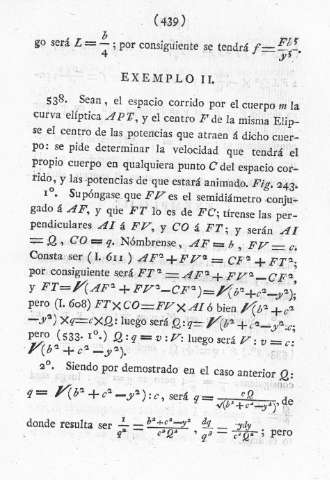 (439)
go será L = b/4 ; por consiguiente se tendrá f = Fb⁵/y⁵.
EXEMPLO II.
538. Sean, el espacio corrido por el cuerpo m la
curva elíptica APT, y el centro F de la misma Elip-
se el centro de las potencias que atraen á dicho cuer-
po: se pide determinar la velocidad que tendrá el
propio cuerpo en qualquiera punto C del espacio cor-
rido, y las potencias de que estará animado. Fig. 243.
1º. Supóngase que FV es el semidiámetro conju-
gado á AF, y que FT lo es de FC; tírense las per-
pendiculares AI á FV, y CO á FT; y serán AI
= Q, CO = q. Nómbrense, AF = b, FV = c.
Consta ser (I. 611) AF² + FV² = CF² + FT²;
por consiguiente será FT² = AF² + FV² − CF²,
y FT = √(AF² + FV² − CF²) = √(b² + c² − y²);
pero (I. 608) FT × CO = FV × AI ó bien √(b² + c²
− y²) × q = c × Q: luego será Q : q = √(b² + c² − y² : c;
pero (533. 1º.) Q : q = v : V: luego será V : v = c :
√(b² + c² − y²).
2º. Siendo por demostrado en el caso anterior Q :
q = √(b² + c² − y²) : c, será q = cQ/√(b² + c² − y²), de
donde resulta ser 1/q² = b² + c² − y²/c²Q² , dq/q³ = ydy/c²Q² ; pero